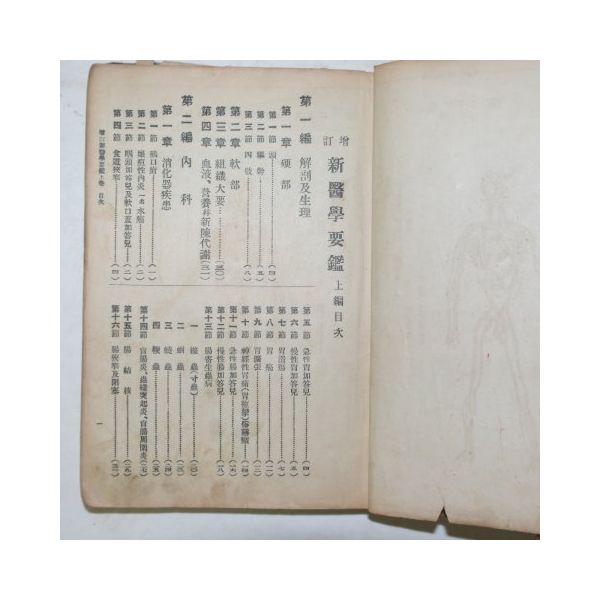 增訂 新醫學要鑑 上編目次
第一編 解剖及生理
第一章 硬部
第一節 頭………(一)
第二節 軀幹………(五)
第三節 四肢………(八)
第二章 軟部
第三章 組織大要………(三〇)
第四章 血液、營養幷新陳代謝(三一)
第二編 內科
第一章 消化器疾患
第一節 鵝口瘡………(一)
第二節 壞疽性內炎一名水癌………(一)
第三節 咽頭加答兒及軟口蓋加答兒………(二)
第四節 食道狹窄………(四)
第五節 急性胃加答兒………(四)
第六節 慢性胃加答兒………(五)
第七節 胃潰瘍………(七)
第八節 胃癌………(一一)
第九節 胃擴張………(一三)
第十節 神經性胃痛(胃痙攣)俗稱癪………(一四)
第十一節 急性腸加答兒………(一六)
第十二節 慢性腸加答兒………(一八)
第十三節 腸寄生蟲病
一 絛蟲(寸蟲)
二 蛔蟲
三 蟯蟲
四
第十四節 盲腸炎、蟲樣突起炎、盲腸周圍炎
第十五節 腸結核
第十六節 腸狹窄及閉塞
增訂新醫學要鑑上卷 目次
一